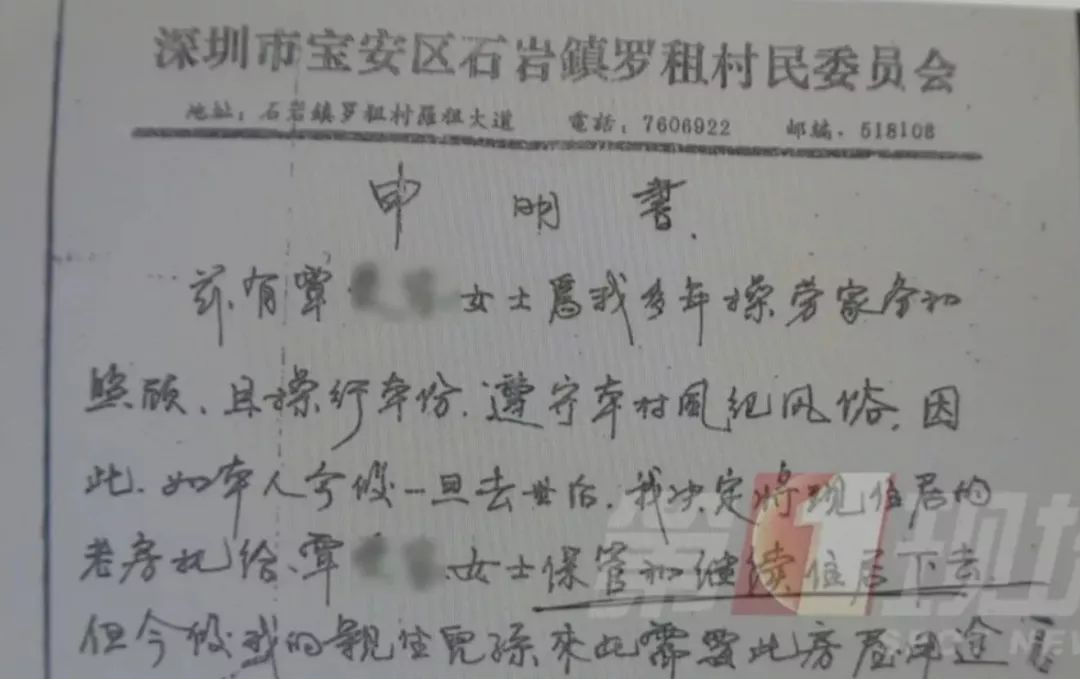 深圳市宝安区石岩鎮罗租村民委员会
地址：石岩鎮罗租村羅租大道 電話：7606922 邮编．518108
申明書．
兹有覃 女士爲我多年操劳家务和
照顾、且操行本份．遵守本村風纪风俗．因
此．如本人今後一旦去世后．我决定将现住居的
老房托给、覃 女士保管和继续住居下去．
但今後我的親生兒孫來此需要此房屋用途
第1现场
NEW